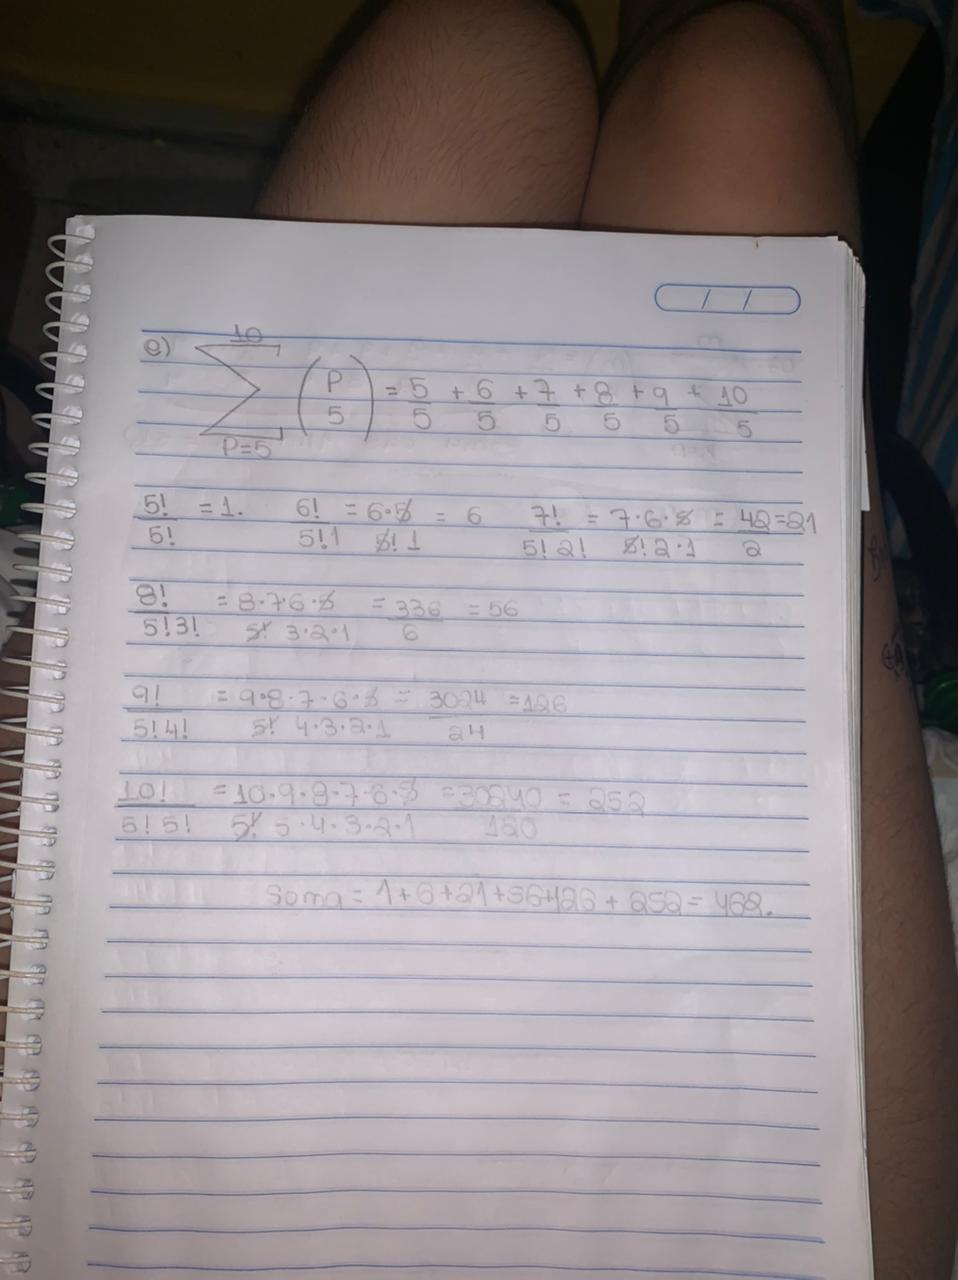 e) 10 ∑ P=5 (P 5) = 5/5 + 6/5 + 7/5 + 8/5 + 9/5 + 10/5
5!/5! = 1. 6!/5!1 = 6·5/5!1 = 6 7!/5!2! = 7·6·5/5!2·1 = 42/2 = 21
8!/5!3! = 8·7·6·5/5! 3·2·1 = 336/6 = 56
9!/5!4! = 9·8·7·6·5/5! 4·3·2·1 = 3024/24 = 126
10!/5!5! = 10·9·8·7·6·5/5! 5·4·3·2·1 = 30240/120 = 252
Soma = 1+6+21+56+126+252 = 462.